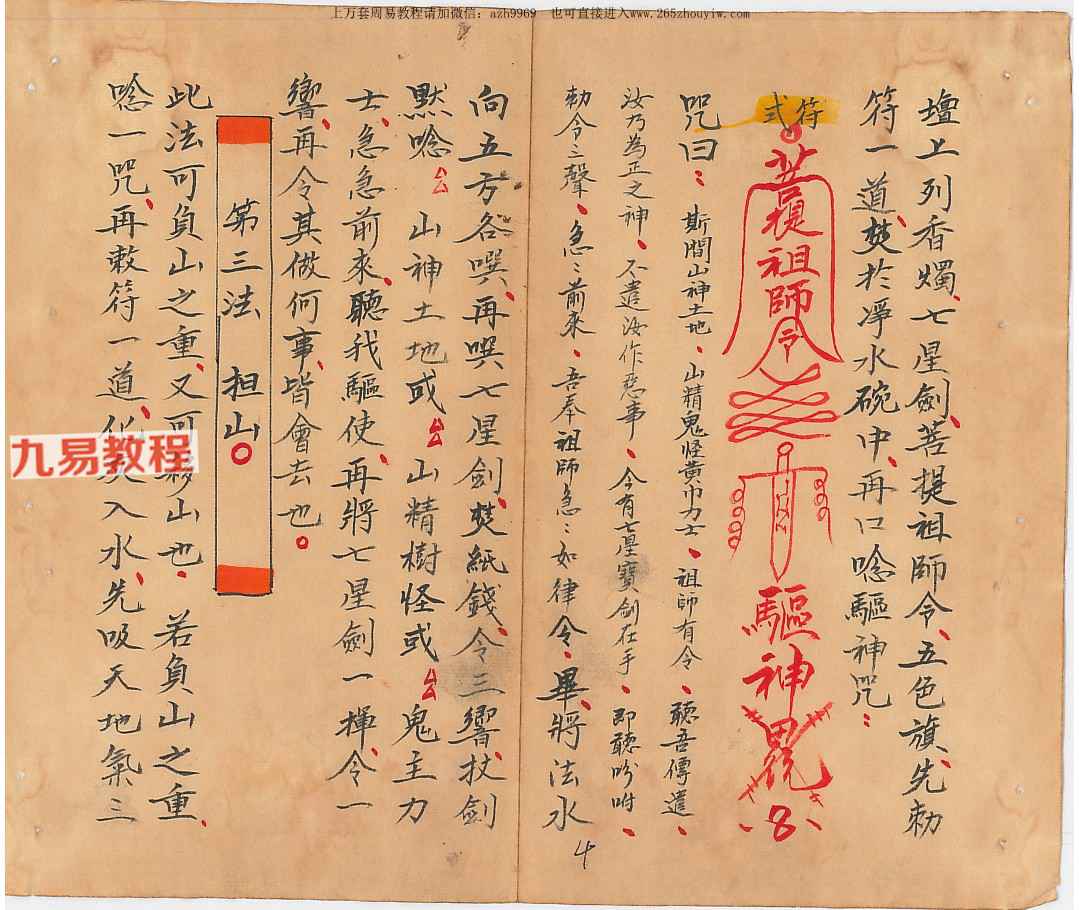 上万套周易教程请加微信：azh9969　也可直接进入www.265zhouyiw.com
壇上列香燭、七星劍、菩提祖師令、五色旗、先勅
符一道、焚於凈水碗中、再口唸驅神咒：
符式
菩提祖師令
驅神
8
咒曰：斯間山神土地、山精鬼怪黄巾力士、祖師有令、聽吾傳遣、
汝乃為正之神、不遣汝作惡事、今有七星寶劍在手、即聽吩咐、
勅令三聲、急〻前來、吾奉祖師急〻如律令、畢、將法水
4
向五方各噀、再噀七星劍、焚紙錢、令三響、扙劍
默唸厶山神土地或厶山精樹怪或厶鬼主力
士、急急前來、聽我驅使、再將七星劍一揮、令一
響、再令其做何事、皆會去也。
第三法　担山
此法可負山之重、又可移山也、若負山之重、
唸一咒、再敕符一道、化入水、先吸天地氣三
九易教程